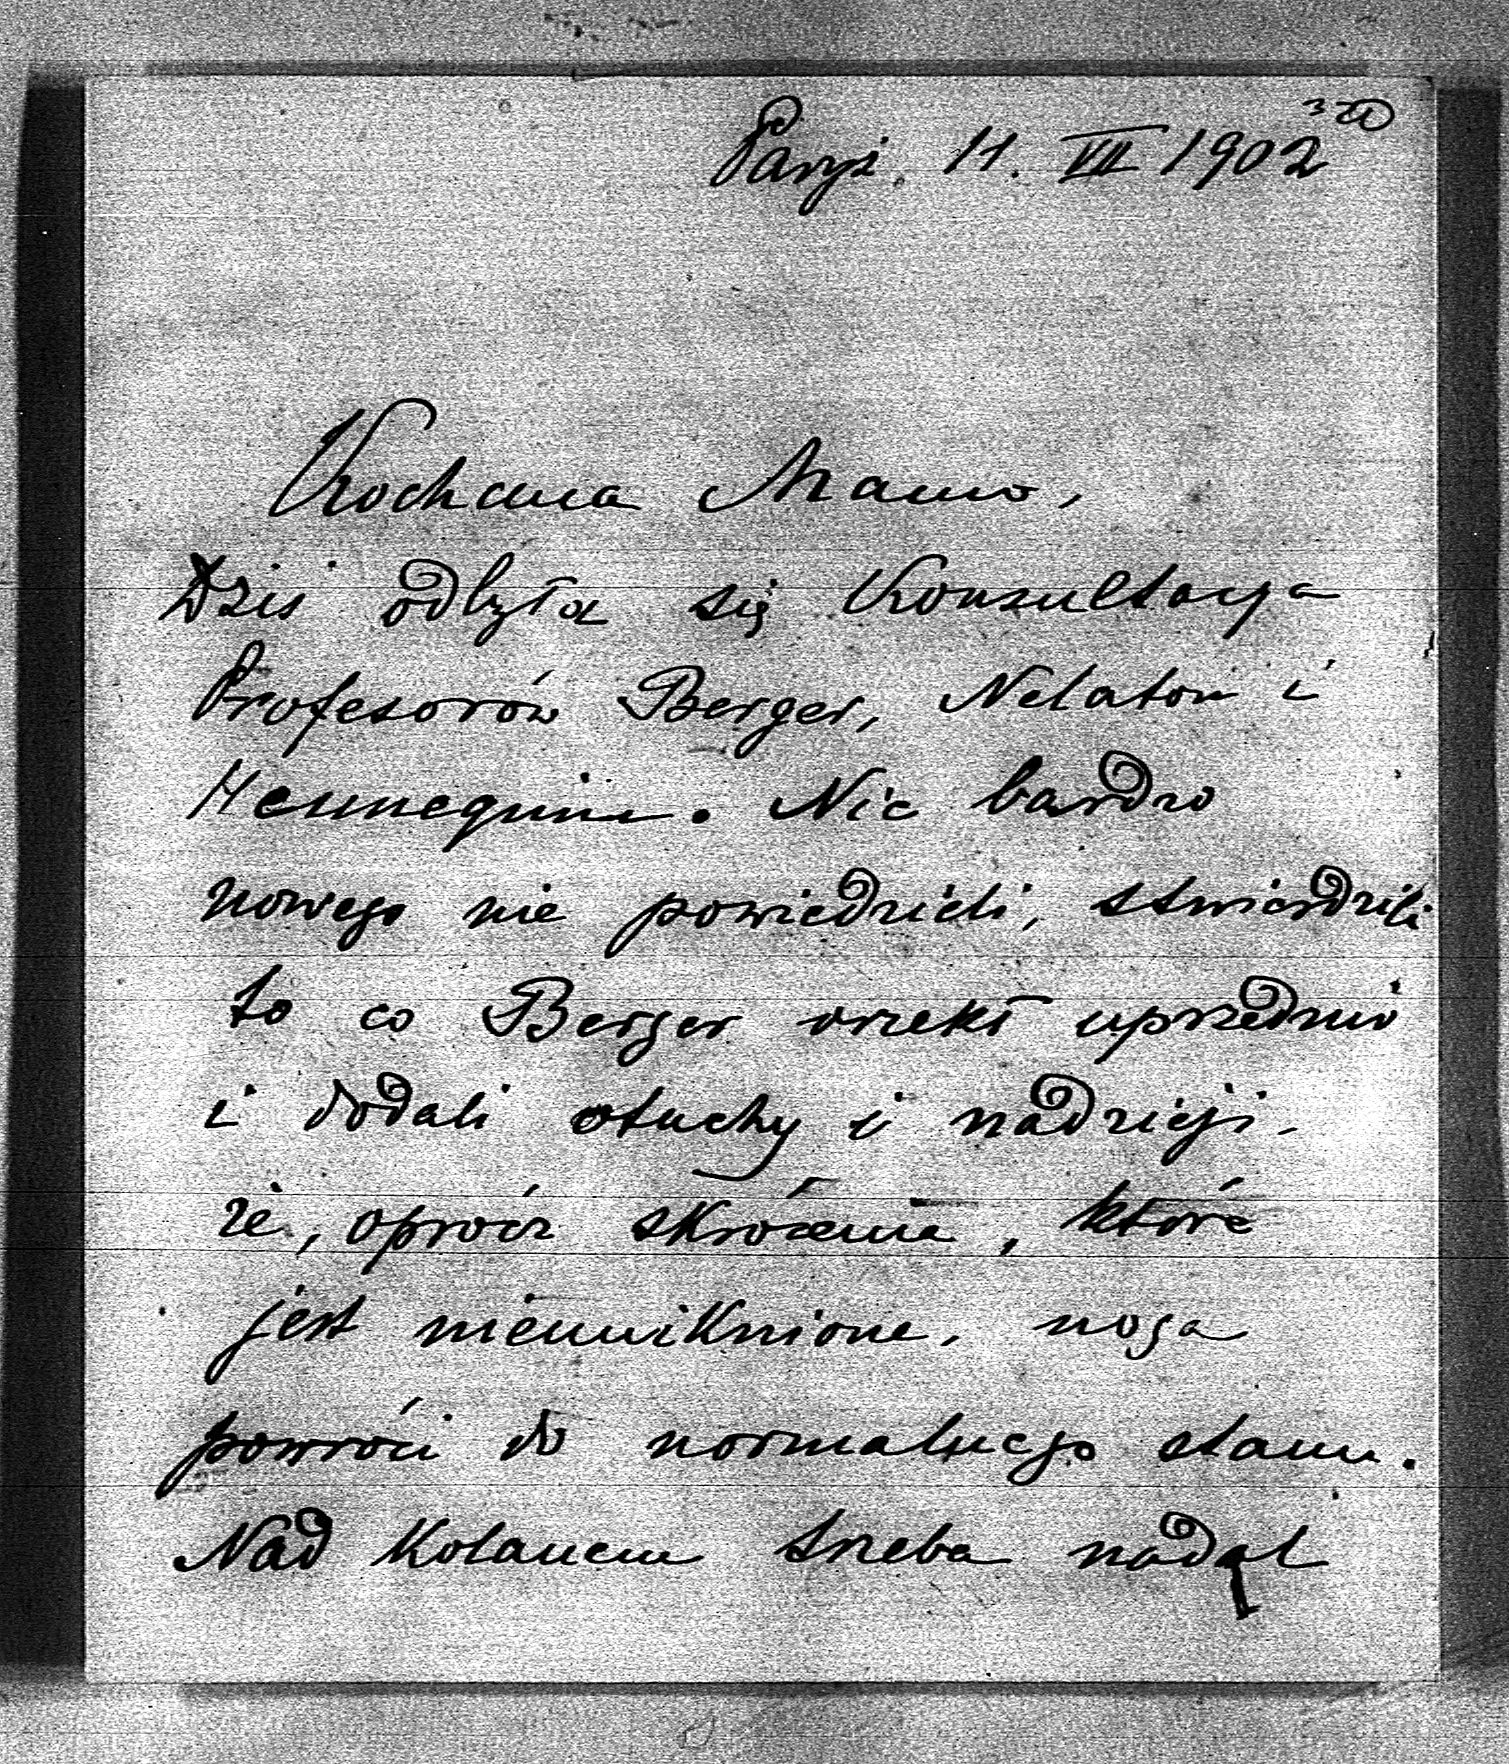 Paryż. 11. VII 1902
Kochana Mamo,
Dziś odbyła się Konsultacya
Profesorów Berger, Nelaton i
Hennequin. Nic bardzo
nowego nie powiedzieli, stwierdzili
to co Berger orzekł uprzednio
i dodali otuchy i nadzieji.
że, oprócz skrócenia, które
jest nieuniknione, noga
powróci do normalnego stanu.
Nad Kolanem trzeba nadal